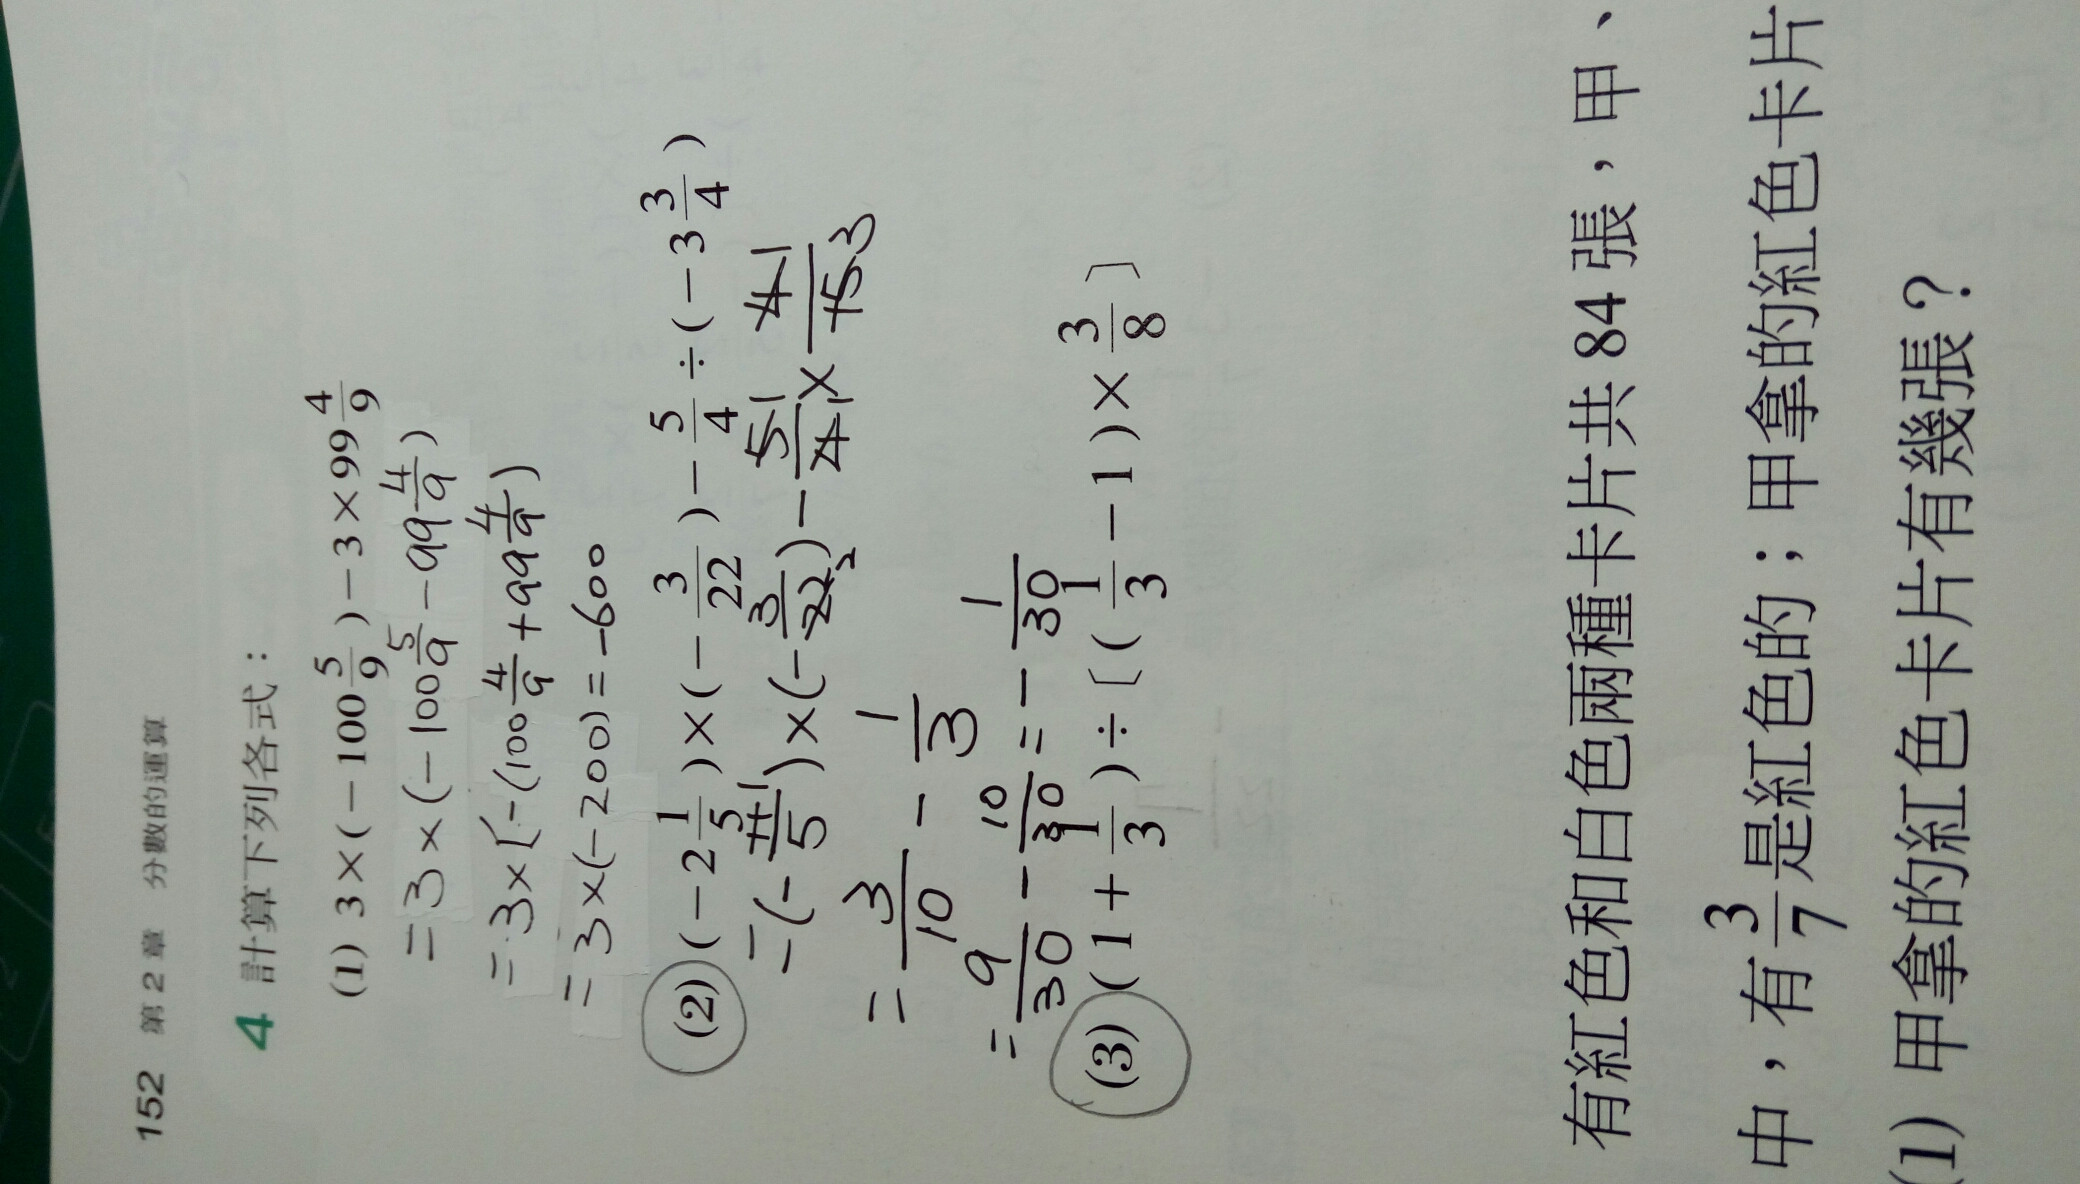 152 第 2 章 分數的運算
4 計算下列各式：
(1) 3×(−100 5/9)−3×99 4/9
=3×(−100 5/9−99 4/9)
=3×[−(100 4/9+99 4/9)
=3×(−200)=−600
(2) (−2 1/5)×(−3/22)−5/4÷(−3 3/4)
=(−11/5)×(−3/22)−5/4×4/15
=3/10−1/3
=9/30−10/30=−1/30
(3) (1+1/3)÷〔(1/3−1)×3/8〕
有紅色和白色兩種卡片共 84 張，甲、
中，有 3/7 是紅色的；甲拿的紅色卡片
(1) 甲拿的紅色卡片有幾張？